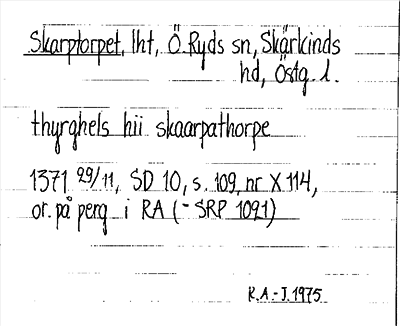 Skarptorpet, lht, Ö. Ryds sn, Skärkinds
hd, Östg. l.
thyrghels hii skaarpathorpe
1371 29/11, SD 10, s. 109, nr X 114,
or. på perg i RA (- SRP 1091)
R.A.-J. 1975